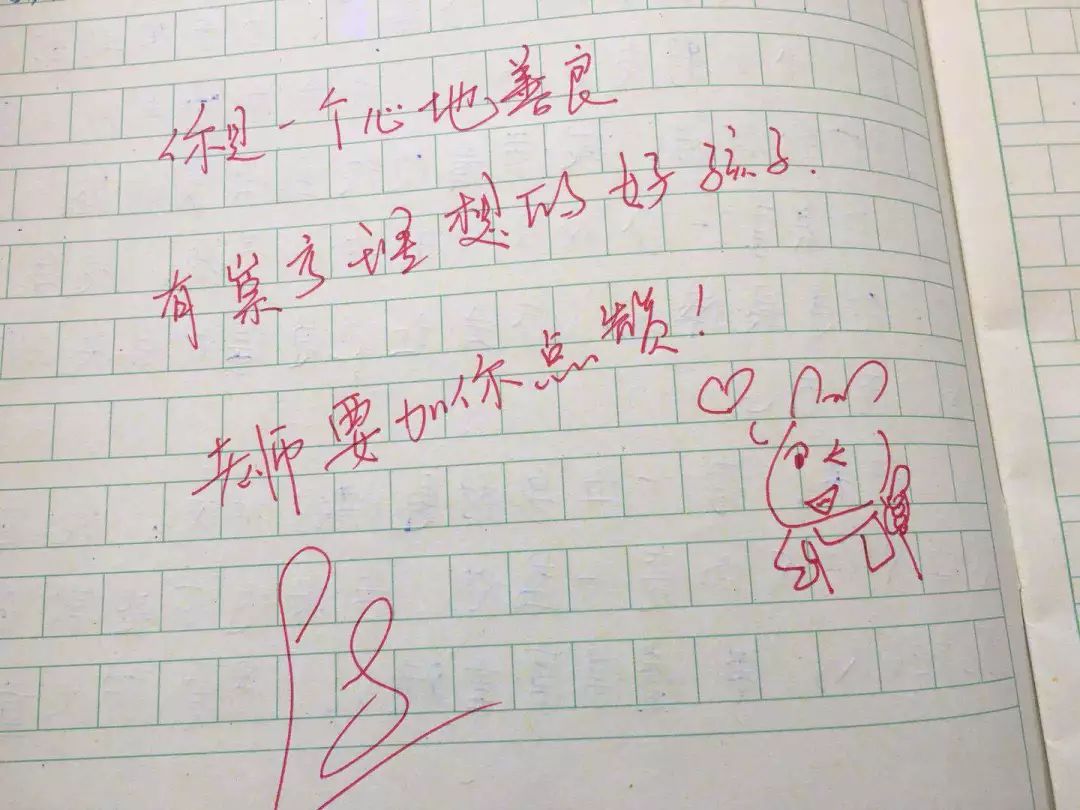 你是一个心地善良
有崇高理想的好孩子.
老师要加你点赞!